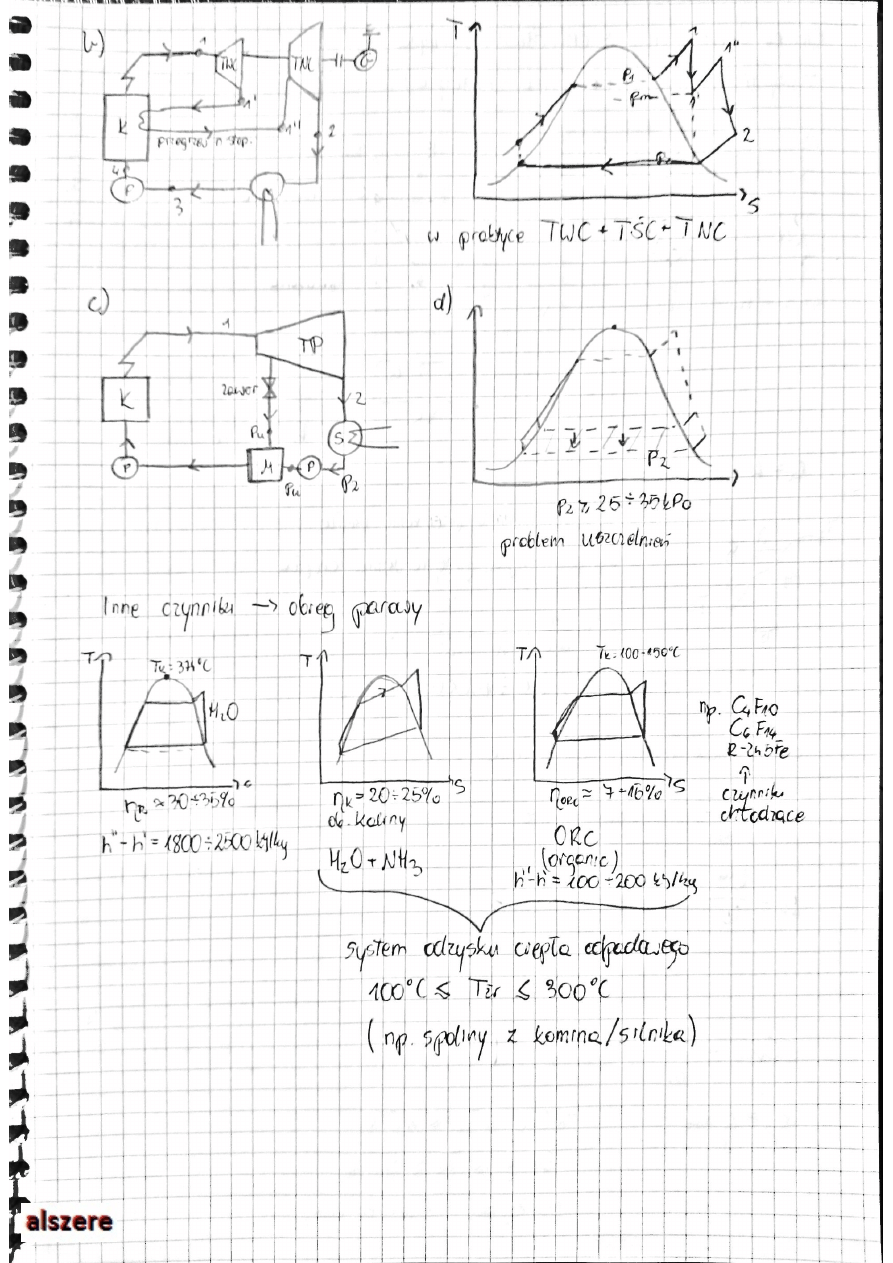 b)
1
TWC
TNC
G
1'
K
1"
2
przegrzew n stop.
4
P
3
T
1
1"
P1
pm
1'
2
S
w praktyce TWC + TŚC + TNC
c)
1
TP
K
zawór
2
Pu
S
P
M
Pu
P
P2
d)
P2
P2 ≥ 25 ÷ 35 kPa
problem uszczelnień
Inne czynniki → obieg parowy
T
Tk = 374°C
H2O
ηR ≈ 30 ÷ 35%
h" - h' = 1800 ÷ 2500 kJ/kg
T
S
ηK = 20 ÷ 25%
ob. Kaliny
H2O + NH3
T
Tk = 100 ÷ 150°C
S
ηORC ≈ 7 ÷ 16%
ORC
(organic)
h" - h' = 100 ÷ 200 kJ/kg
np. C4F10
C6F14
↑
czynniki
chłodzące
system odzysku ciepła odpadowego
100°C ≤ Tźr ≤ 300°C
(np. spaliny z komina/silnika)
alszere